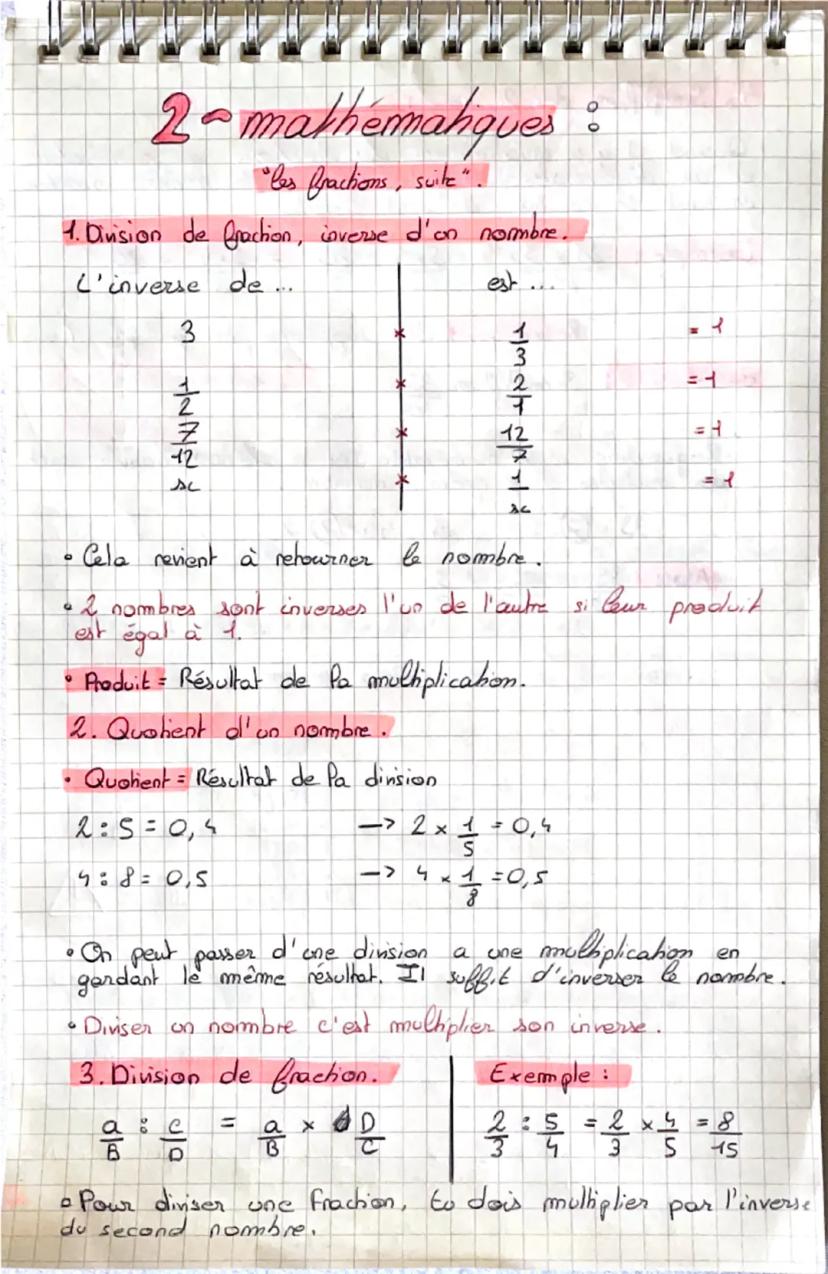 2 ~ mathématiques :
"les fractions, suite".
1. Division de fraction, inverse d'un nombre.
L'inverse de ... est ...
3 × 1/3 = 1
1/2 × 2/1 = 1
7/12 × 12/7 = 1
x × 1/x = 1
• Cela revient à retourner le nombre.
• 2 nombres sont inverses l'un de l'autre si leur produit
est égal à 1.
• Produit = Résultat de la multiplication.
2. Quotient d'un nombre.
• Quotient = Résultat de la division
2 : 5 = 0,4 -> 2 × 1/5 = 0,4
4 : 8 = 0,5 -> 4 × 1/8 = 0,5
• On peut passer d'une division a une multiplication en
gardant le même résultat. Il suffit d'inverser le nombre.
• Diviser un nombre c'est multiplier son inverse.
3. Division de fraction. Exemple :
a/B : c/D = a/B × D/C 2/3 : 5/4 = 2/3 × 4/5 = 8/15
• Pour diviser une fraction, tu dois multiplier par l'inverse
du second nombre.